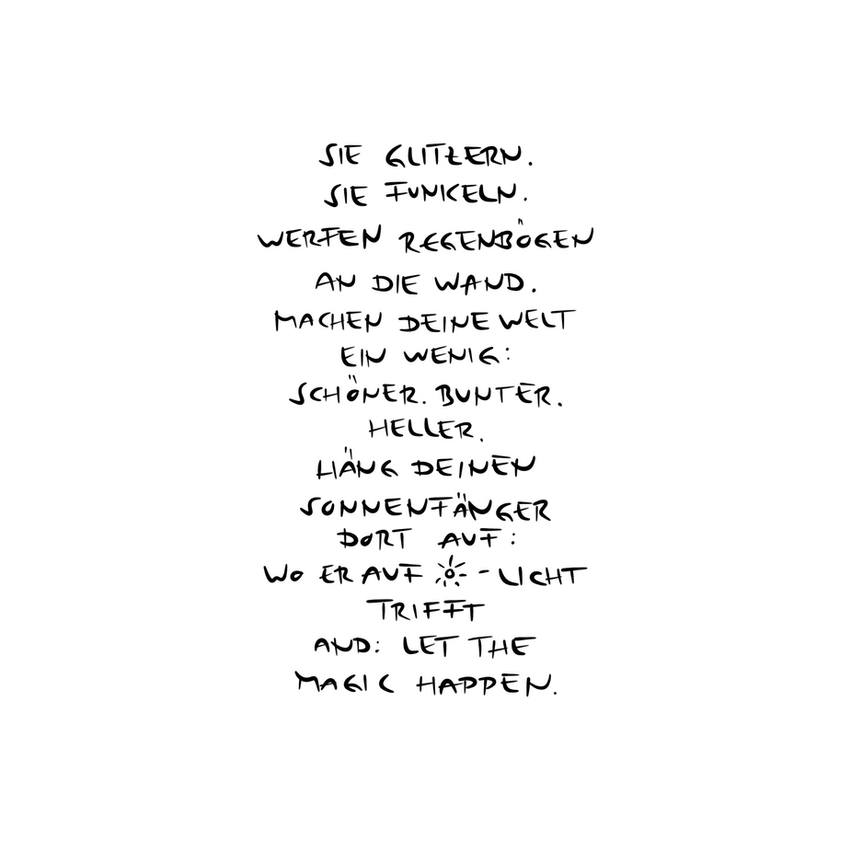 SIE GLITZERN.
SIE FUNKELN.
WERFEN REGENBÖGEN
AN DIE WAND.
MACHEN DEINE WELT
EIN WENIG:
SCHÖNER. BUNTER.
HELLER.
HÄNG DEINEN
SONNENFÄNGER
DORT AUF:
WO ER AUF ☼-LICHT
TRIFFT
AND: LET THE
MAGIC HAPPEN.